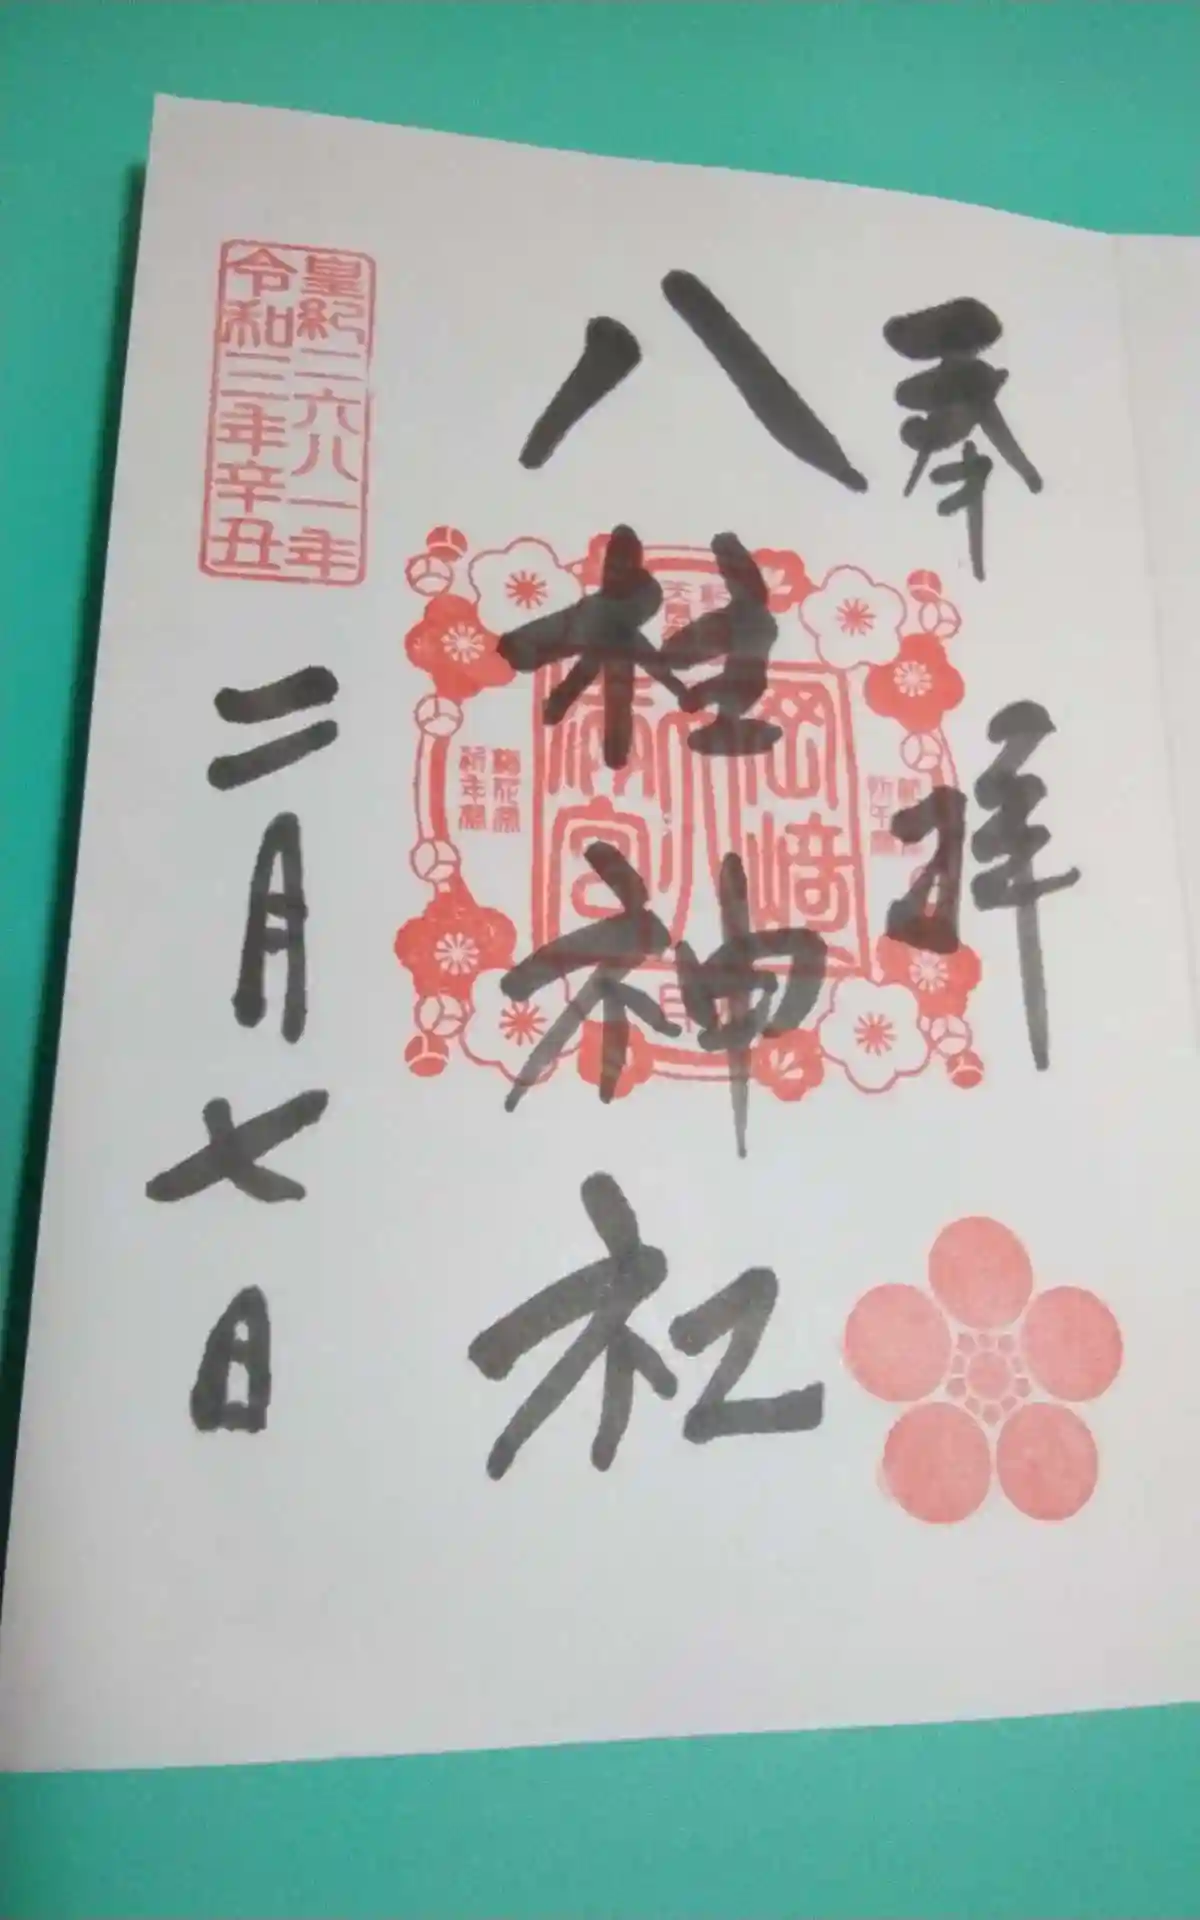 奉拝
八柱神社
岡崎
天満宮
皇紀二六八一年
令和三年辛丑
二月七日